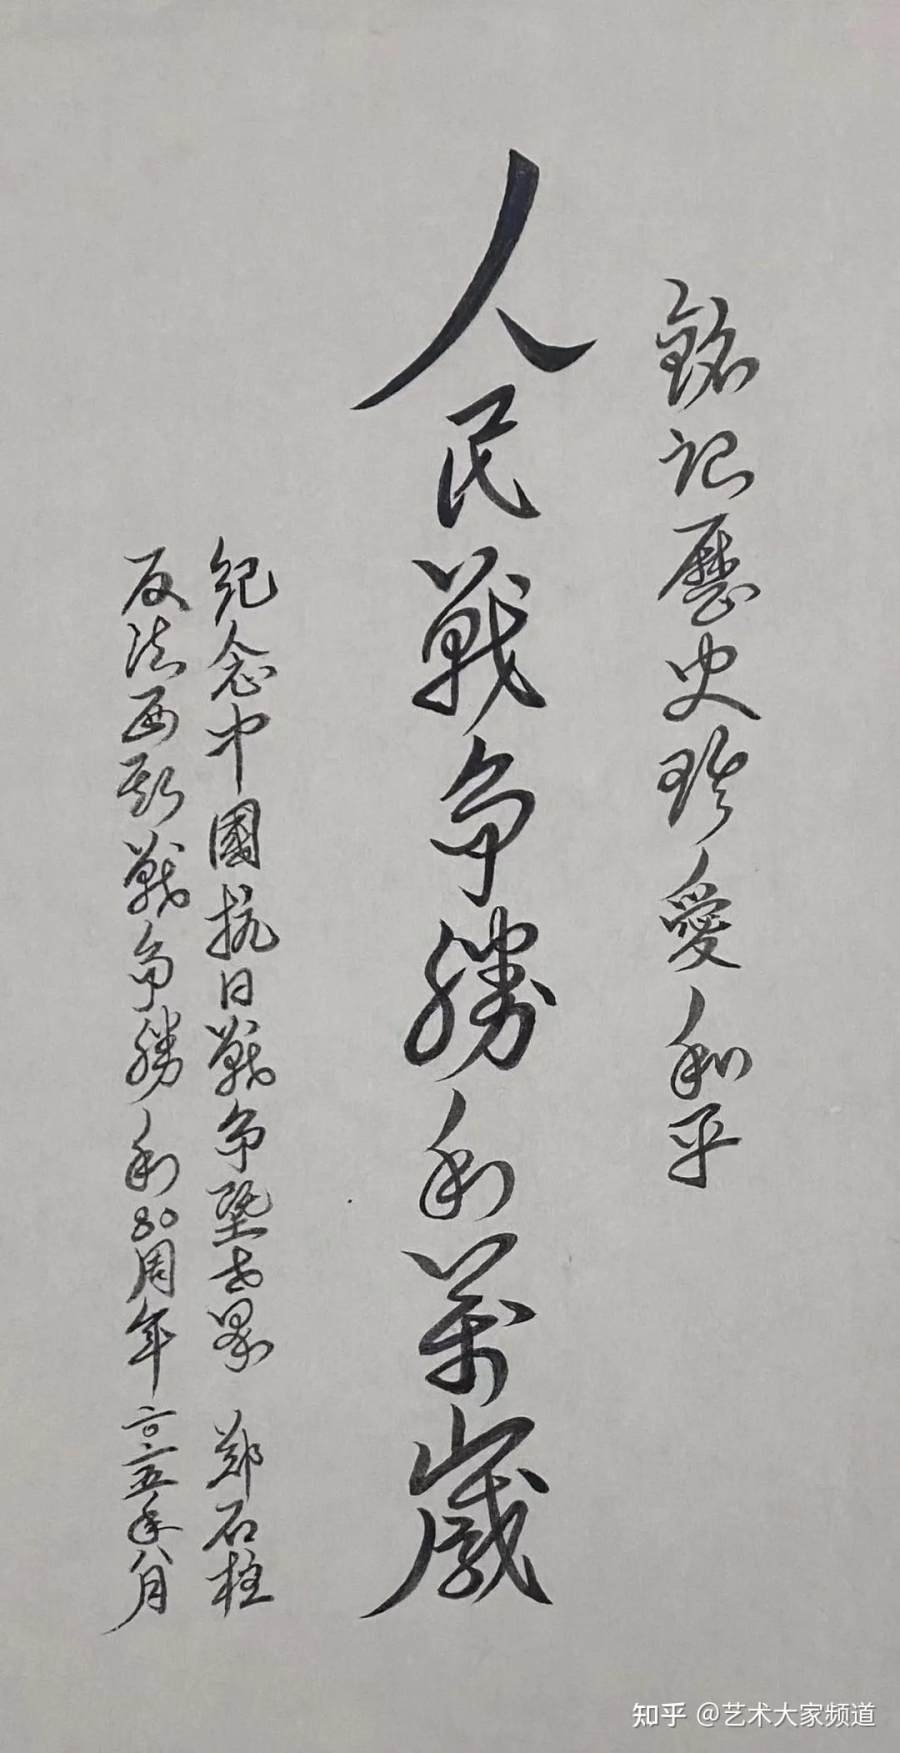 銘记歷史珍愛和平
人民戰争勝利萬歲
纪念中國抗日戰争暨世界 郑石柱
反法西斯戰争勝利80周年 二〇二五年八月
知乎 @艺术大家频道